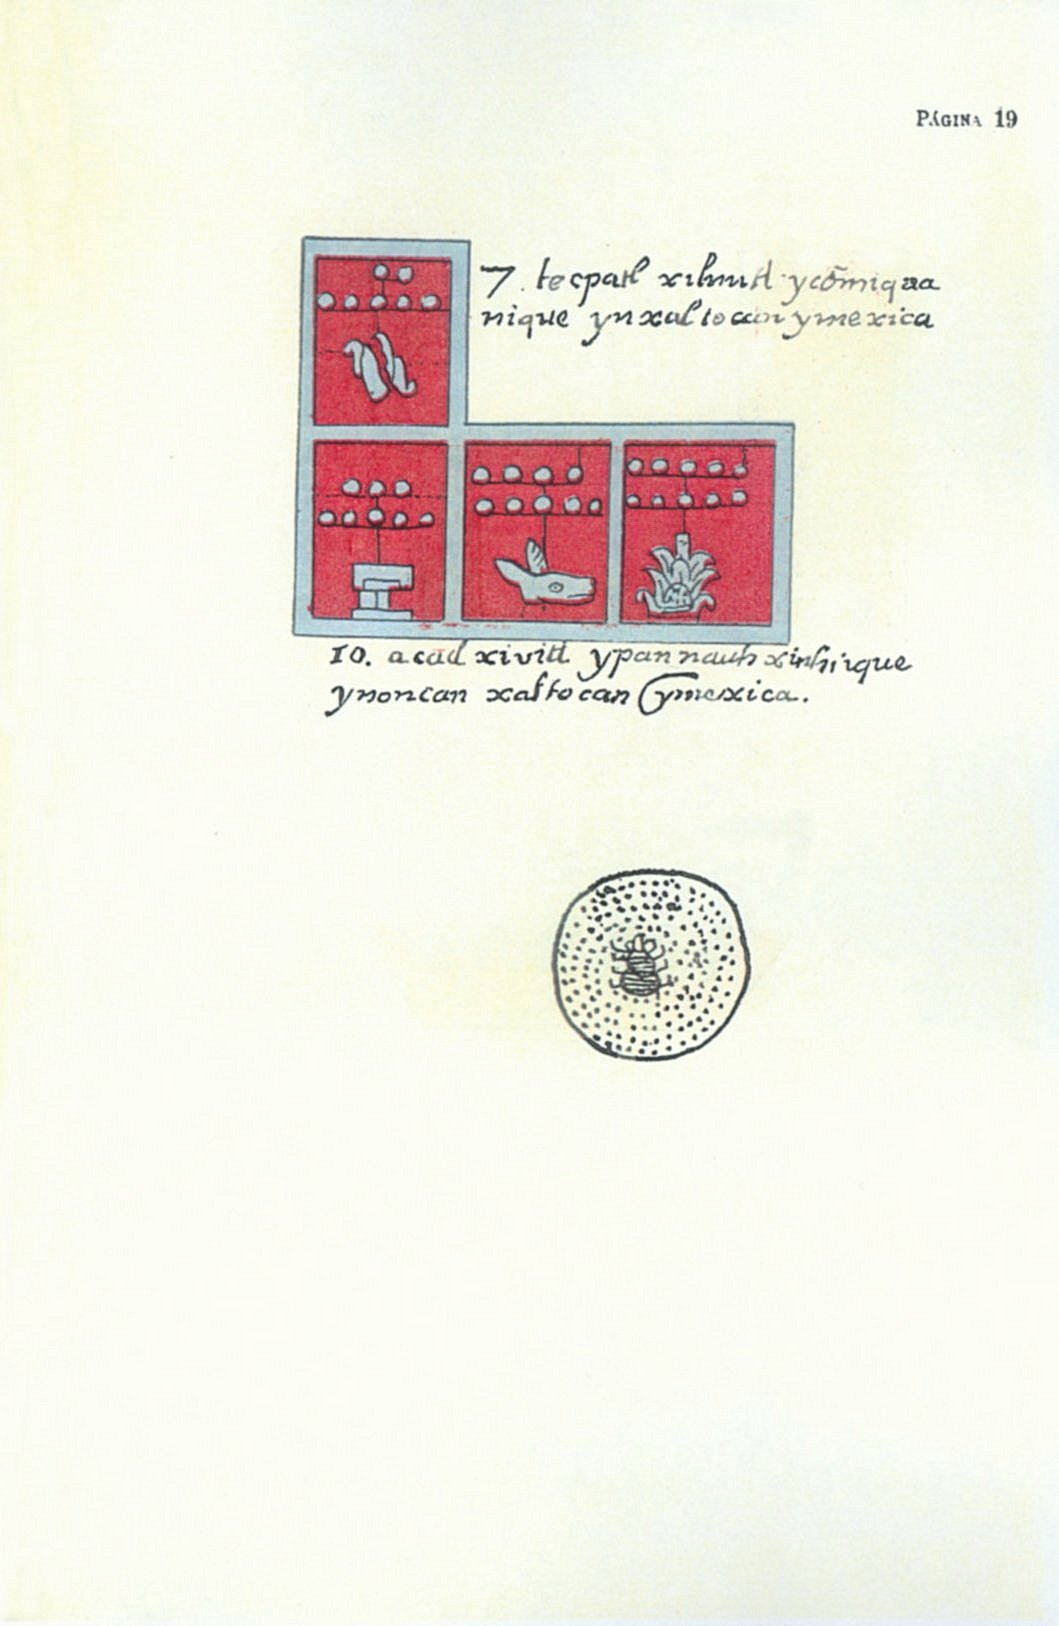 PÁGINA 19
7. tecpatl xihuitl ycōmiquaa
nique ynxaltocan ymexica
10. acatl xivitl ypan nauhxiuhtique
ynoncan xaltocan ymexica.